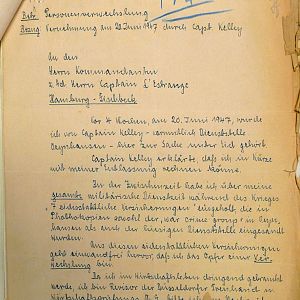 Betr. Personenverwechslung
Bezug: Vernehmung am 20. Juni 1947 durch Capt. Kelley
An den
Herrn Kommandanten
z. Hd. Herrn Captain L'Estrange
Hamburg-Fischbeck
Vor 4 Wochen, am 20. Juni 1947, wurde
ich von Captain Kelley - vermutlich Dienststelle
Oeynhausen - hier zur Sache unter Eid gehört.
Captain Kelley erklärte, daß ich in Kürze
mit meiner Entlassung rechnen könne.
In der Zwischenzeit habe ich über meine
gesamte militärische Dienstzeit während des Krieges
7 eidesstattliche Versicherungen eingeholt, die in
Photokopien sowohl der war crime group in Oeyn-
hausen als auch der hiesigen Dienststelle eingesandt
wurden.
Aus diesen eidesstattlichen Versicherungen
geht einwandfrei hervor, daß ich das Opfer einer Ver-
wechslung bin.
Da ich im Wirtschaftsleben dringend gebraucht
werde, ich bin Revisor der Düsseldorfer Treuhand